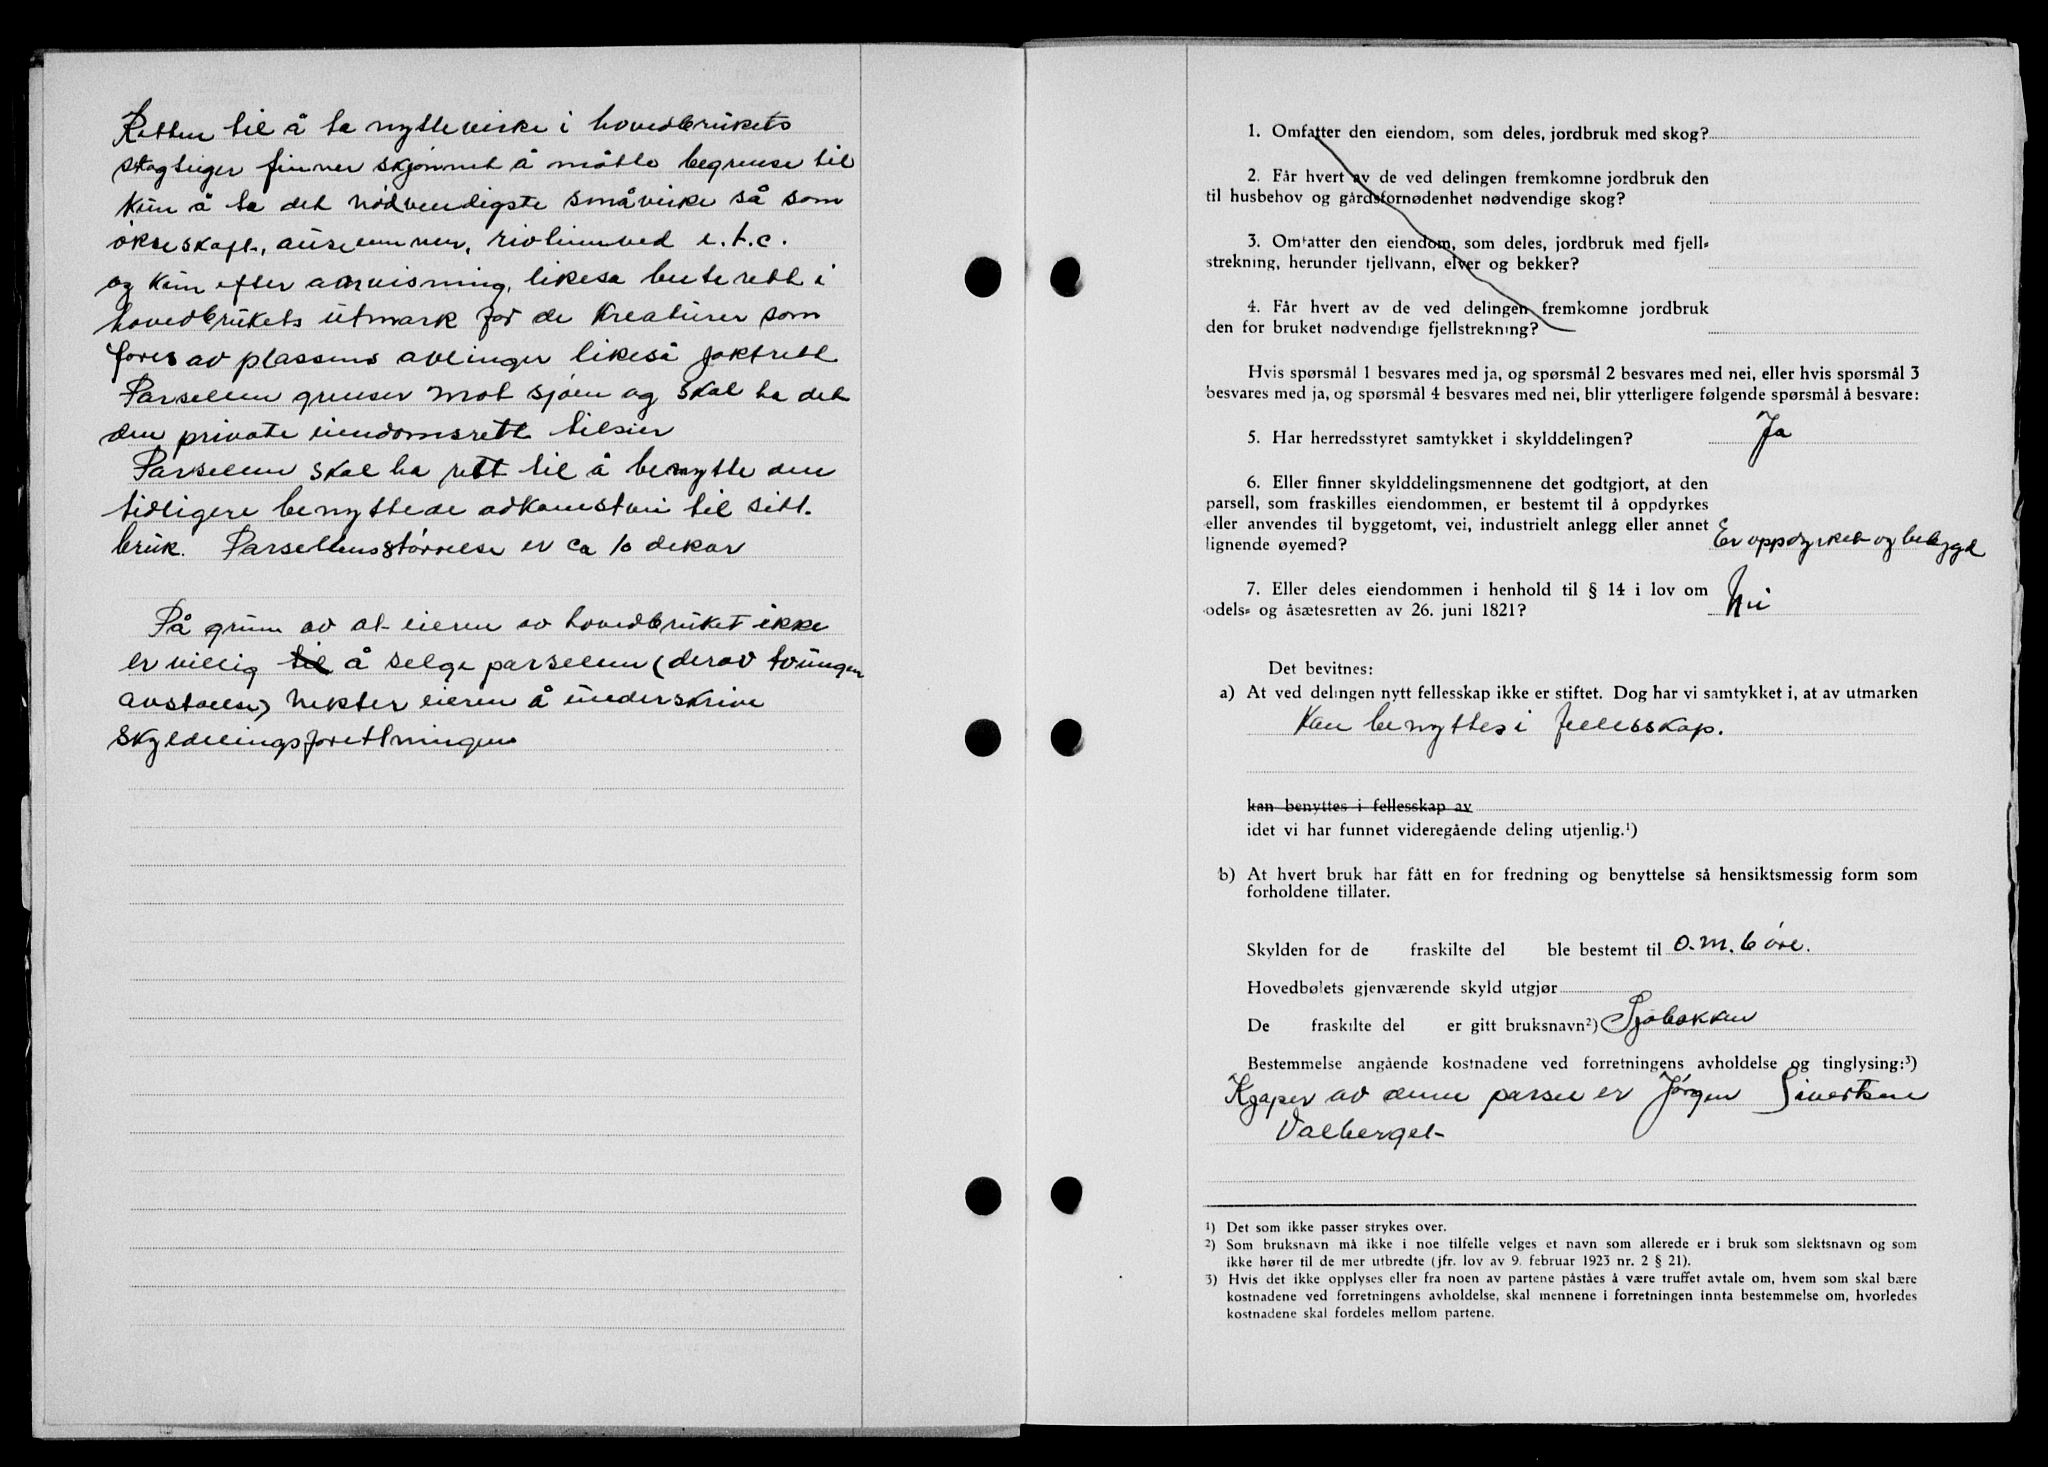 Retten til å ta nyttevirke i hovedbrukets
skogteiger finner skjønnet å måtte begrense til
kun å ta det nødvendigste småvirke så som
økseskaft, auseemner, rivtinnved e.t.c.
og kun efter anvisning, likesa beiterett i
hovedbrukets utmark for de kreaturer som
fores av plassens avlinger likeså jaktrett
Parselen grenser mot sjøen og skal ha det
den private eiendomsrett tilsier
Parselen skal ha rett til å benytte den
tidligere benyttede adkomstvei til sitt.
bruk. Parsellensstørrelse er ca 10 dekar
På grun av at eieren av hovedbruket ikke
er villig til å selge parselen (derav tvungen
avståelse) nekter eieren å underskrive
skyldelingsforettningen
1. Omfatter den eiendom, som deles, jordbruk med skog?
2. Får hvert av de ved delingen fremkomne jordbruk den
til husbehov og gårdsfornødenhet nødvendige skog?
3. Omfatter den eiendom, som deles, jordbruk med fjell-
strekning, herunder fjellvann, elver og bekker?
4. Får hvert av de ved delingen fremkomne jordbruk
den for bruket nødvendige fjellstrekning?
Hvis spørsmål 1 besvares med ja, og spørsmål 2 besvares med nei, eller hvis spørsmål 3
besvares med ja, og spørsmål 4 besvares med nei, blir ytterligere følgende spørsmål å besvare:
5. Har herredsstyret samtykket i skylddelingen? Ja
6. Eller finner skylddelingsmennene det godtgjort, at den
parsell, som fraskilles eiendommen, er bestemt til å oppdyrkes
eller anvendes til byggetomt, vei, industrielt anlegg eller annet
lignende øyemed? Er oppdyrket og bebygd
7. Eller deles eiendommen i henhold til § 14 i lov om
odels- og åsætesretten av 26. juni 1821? Nei
Det bevitnes:
a) At ved delingen nytt fellesskap ikke er stiftet. Dog har vi samtykket i, at av utmarken
Kan benyttes i fellesskap.
kan benyttes i fellesskap av
idet vi har funnet videregående deling utjenlig.¹)
b) At hvert bruk har fått en for fredning og benyttelse så hensiktsmessig form som
forholdene tillater.
Skylden for de fraskilte del ble bestemt til 0.m.6 øre.
Hovedbølets gjenværende skyld utgjør
De fraskilte del er gitt bruksnavn²) Sjøbakken
Bestemmelse angående kostnadene ved forretningens avholdelse og tinglysing:³)
Kjøper av denne parsel er Jørgen Sivertsen
Valberget
¹) Det som ikke passer strykes over.
²) Som bruksnavn må ikke i noe tilfelle velges et navn som allerede er i bruk som slektsnavn og som
ikke hører til de mer utbredte (jfr. lov av 9. februar 1923 nr. 2 § 21).
³) Hvis det ikke opplyses eller fra noen av partene påståes å være truffet avtale om, hvem som skal bære
kostnadene ved forretningens avholdelse, skal mennene i forretningen innta bestemmelse om, hvorledes
kostnadene skal fordeles mellom partene.